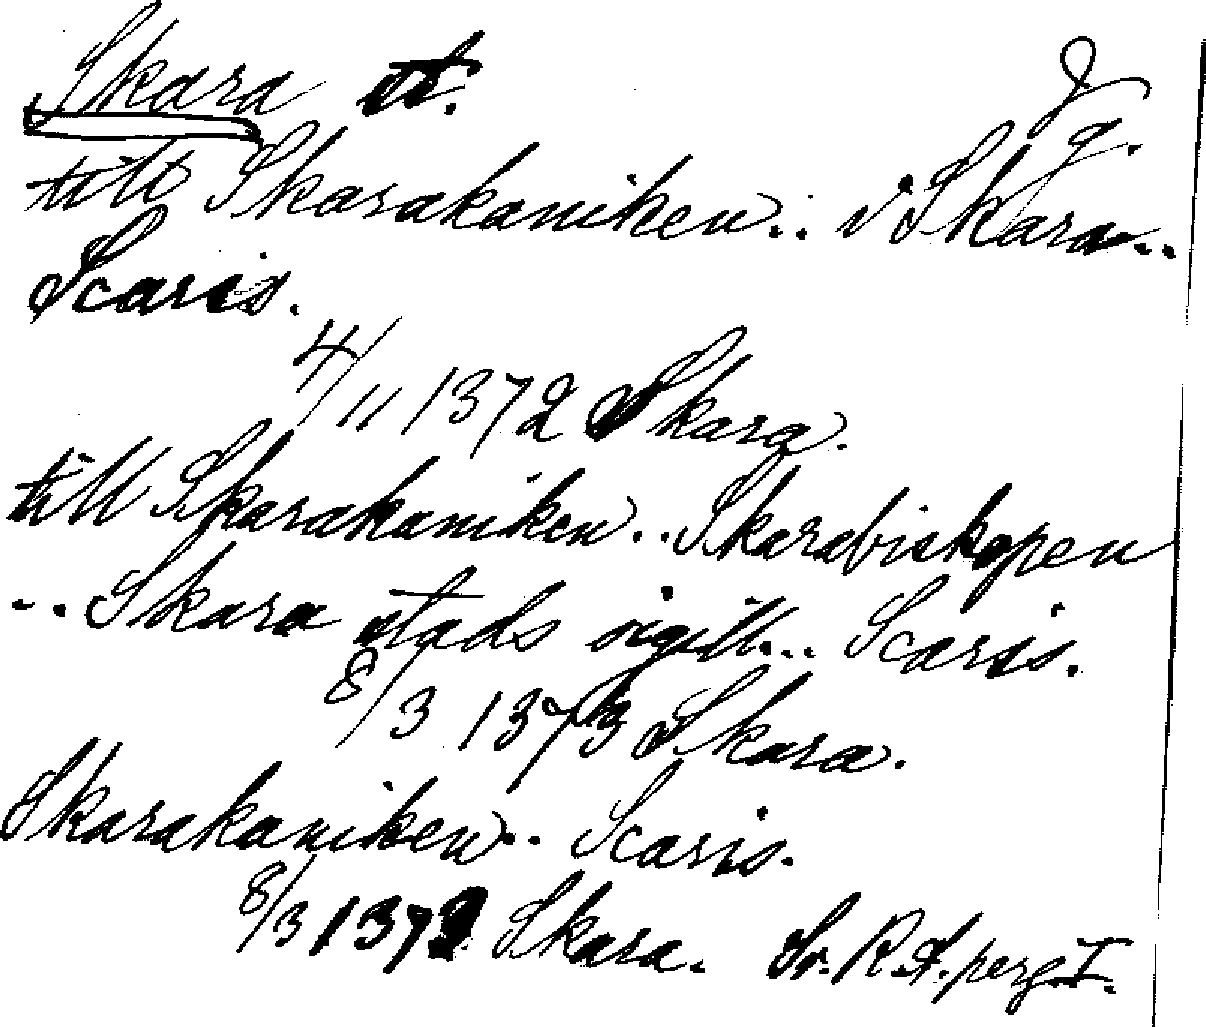 Skara st.
till Skarakaniken .. i Skara ..
Scaris.
4/11 1372 Skara.
till Skarakaniken .. Skarabiskopen
.. Skara stads sigill ... Scaris.
8/3 1373 Skara.
Skarakaniken .. Scaris.
8/3 1373 Skara. Sv. R.A. perg. I.